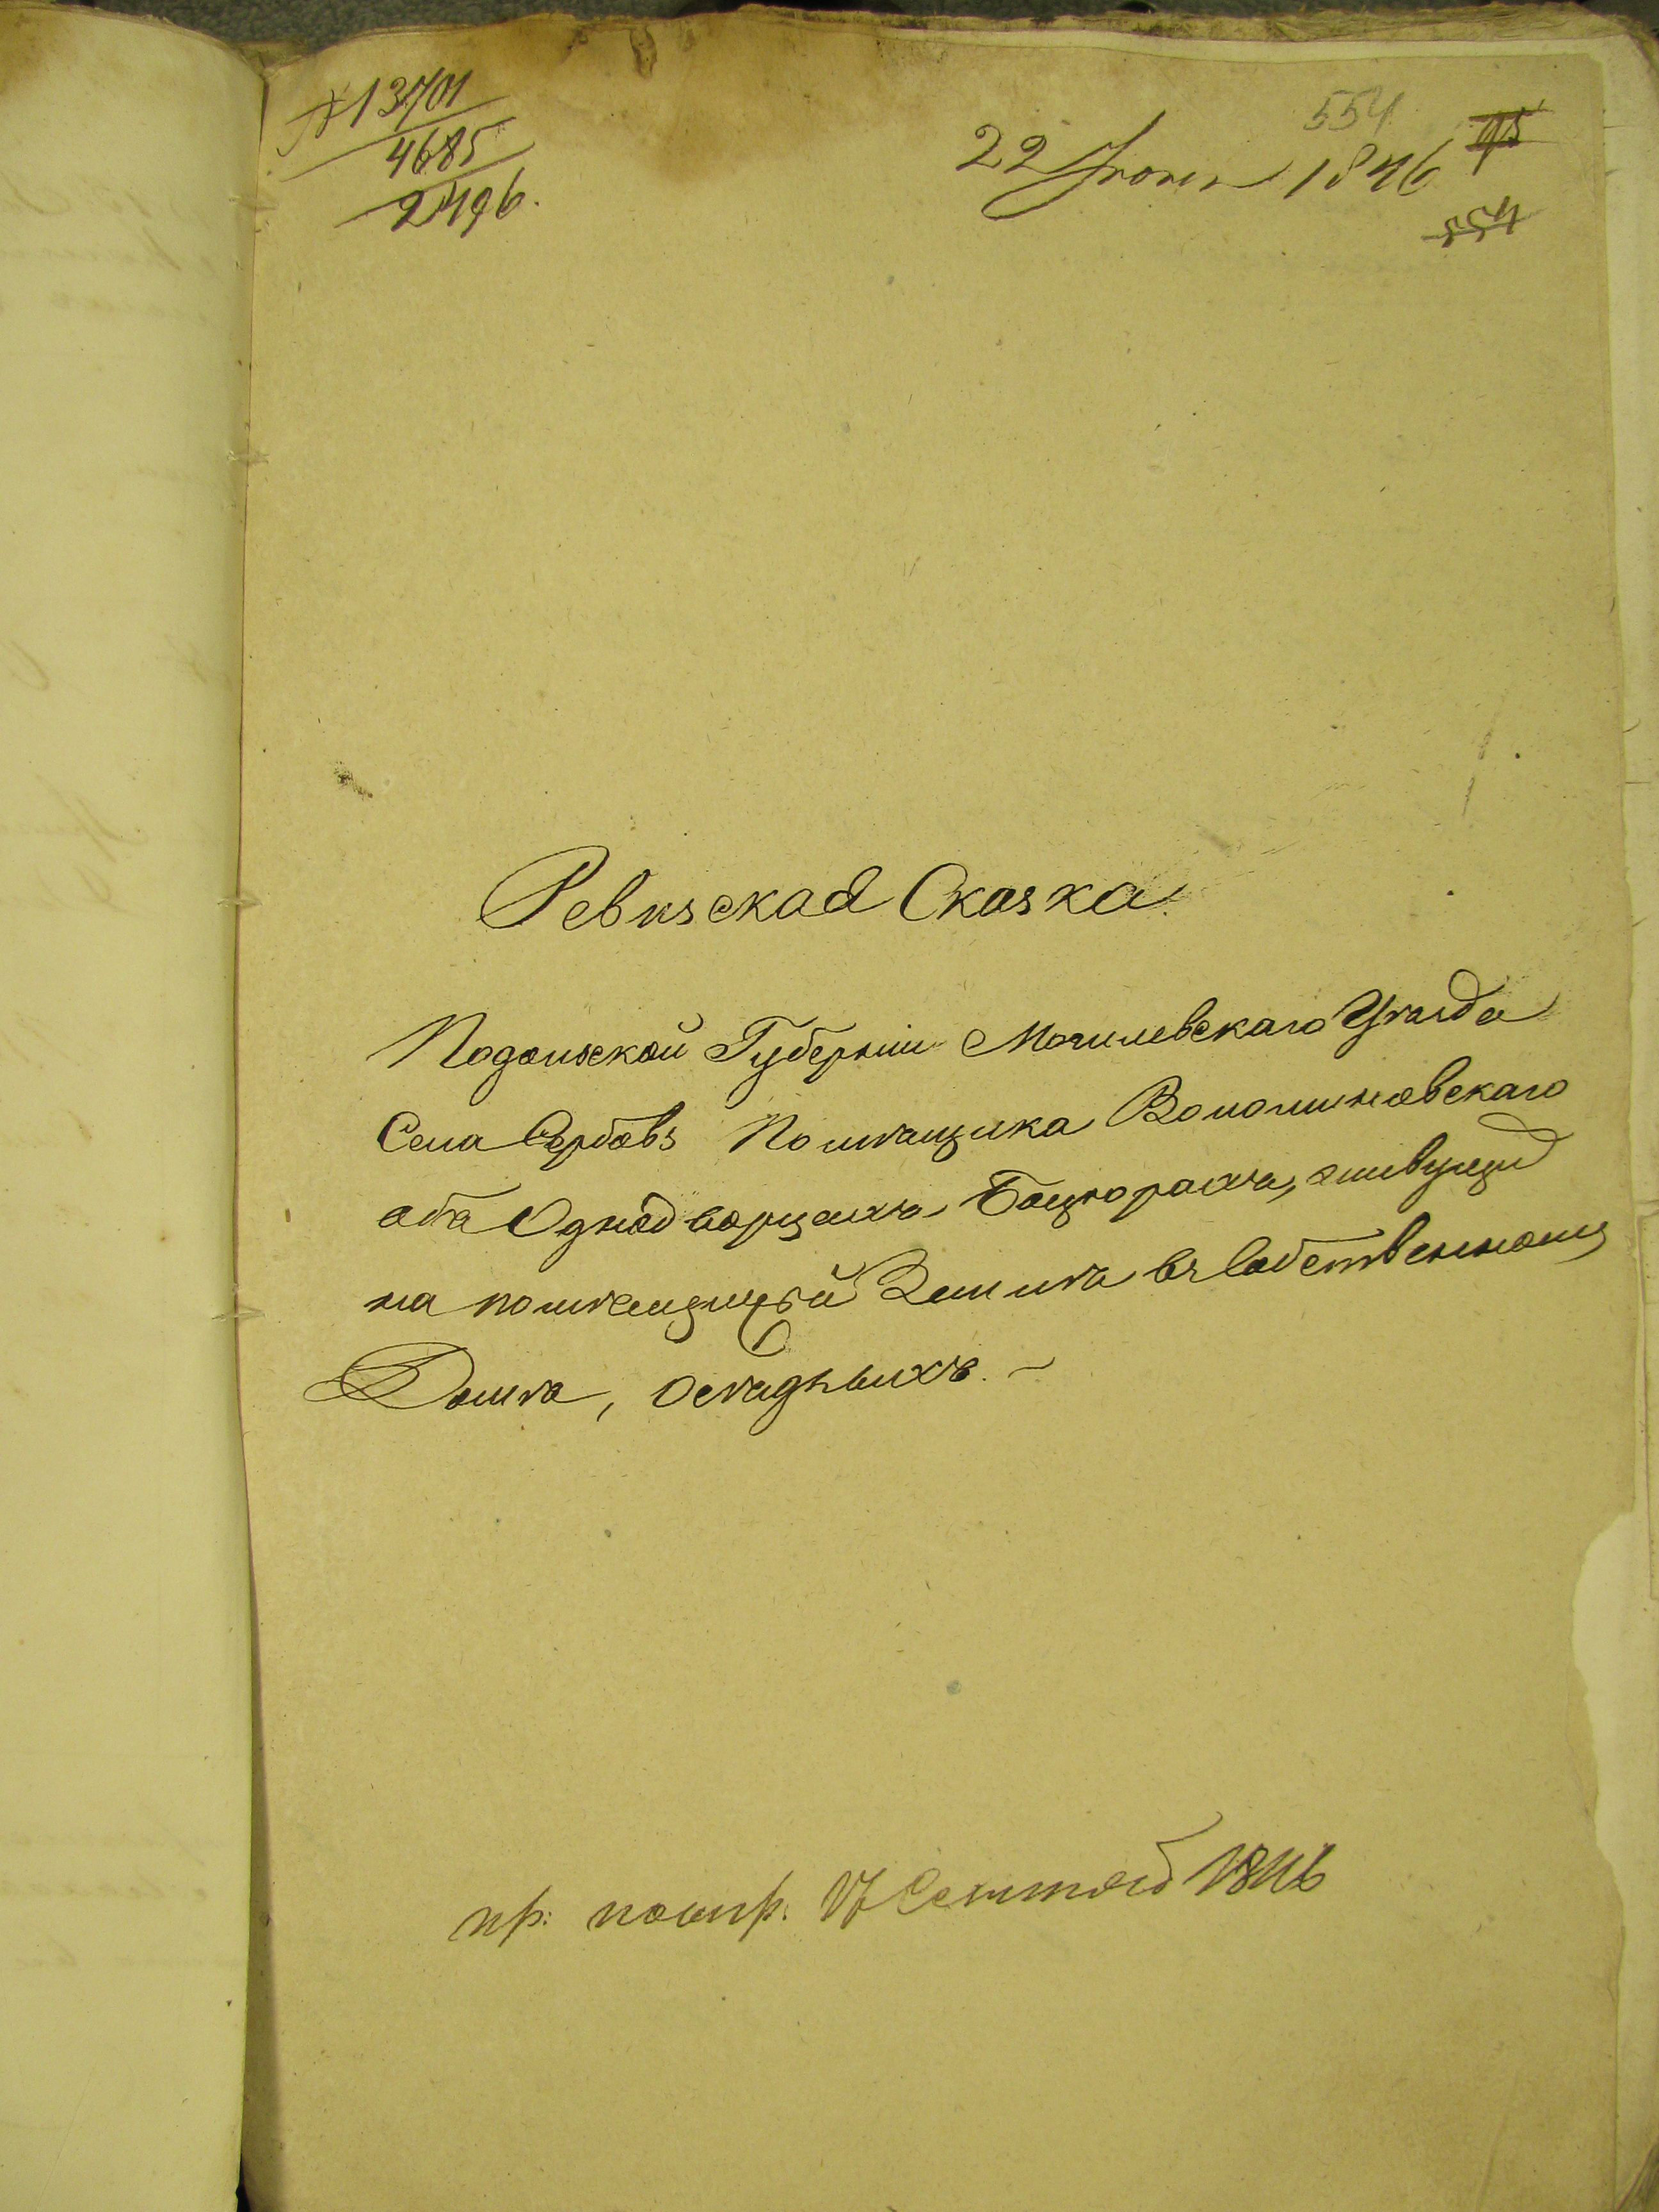 № 13701
4685
2496.
554
22 Июня 1846
95
554
Ревизская Сказка.
Подольской Губерніи Могилевскаго Уѣзда
Села Сербовъ Помѣщика Вономиновскаго
объ Однодворцахъ живущихъ
на помѣщищей Землѣ въ Собственномъ
Домѣ, осѣдлыхъ. –
пр: 17 Сентяб 1846